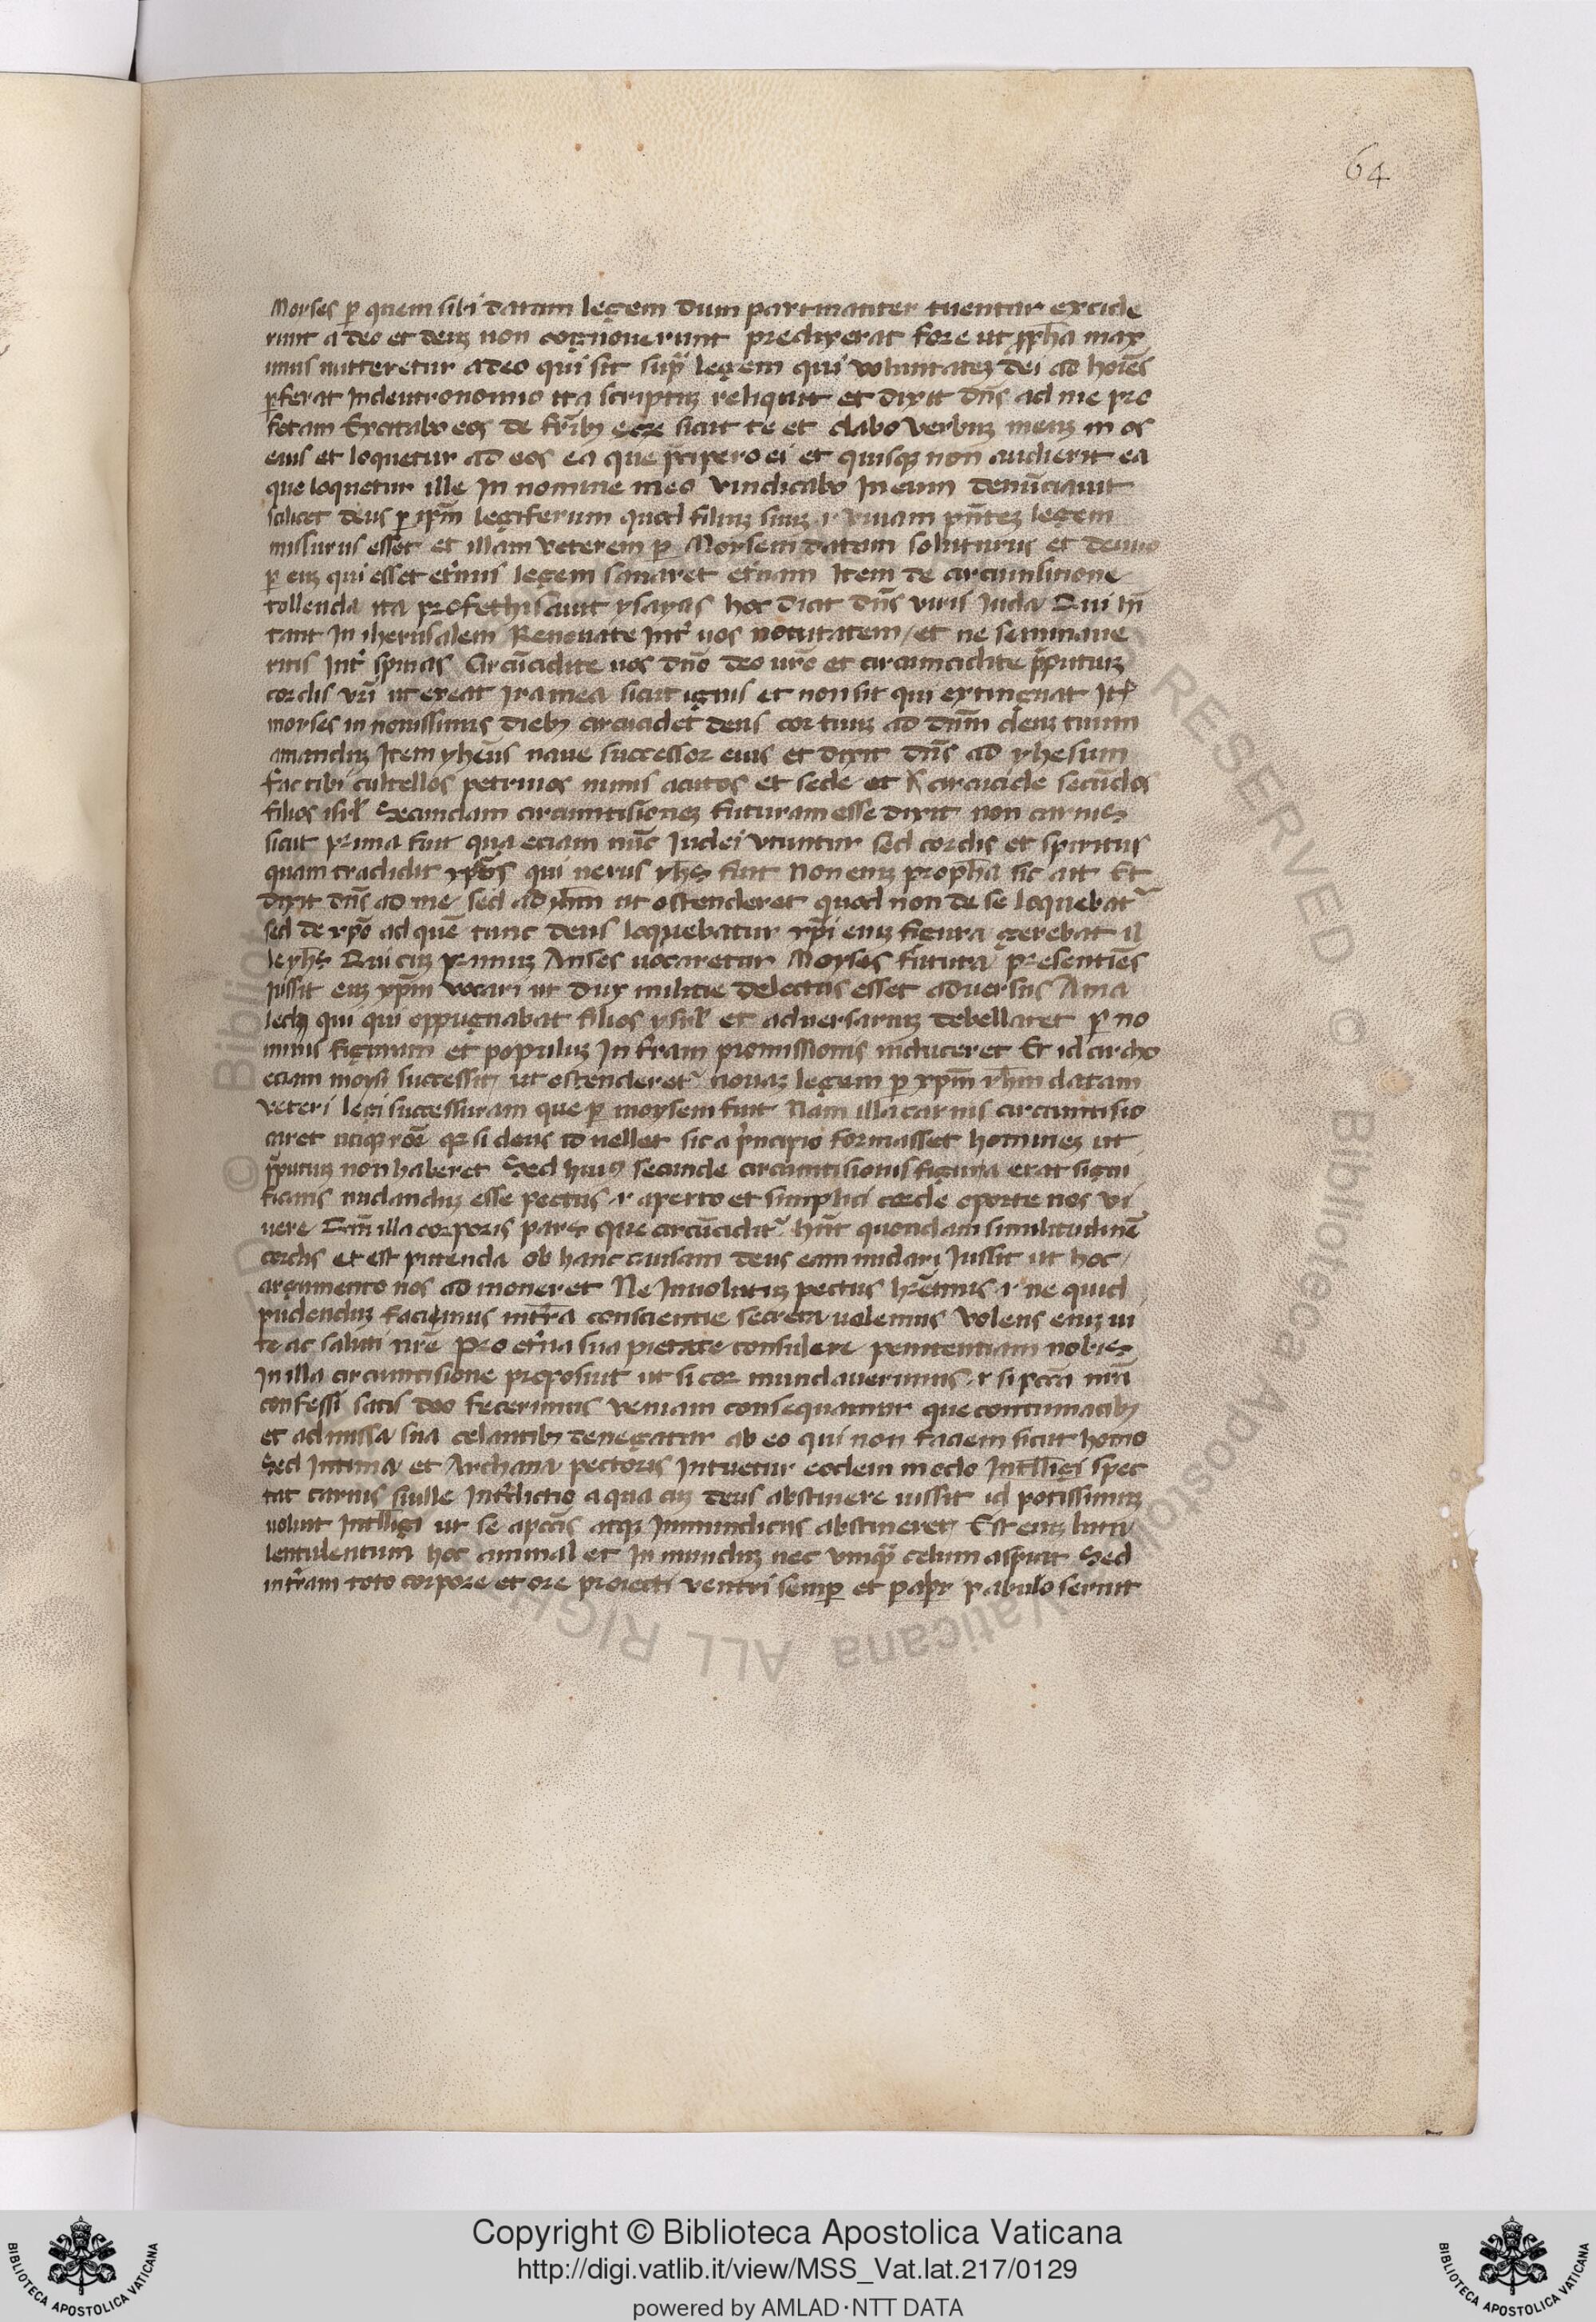 64
Moyses p̱ quem sibi datam legem dum partinaciter tuentur excide
runt a deo et deuʒ non cognouerunt predixerat fore ut ꝓph̄a max
imus mitteretur a deo qui sit sup̄ legem qui voluntateʒ dei ad hoīes
ꝑferat In deutronomio ita scriptuʒ reliquit et dixit dn̄s ad me pro
fetam Excitabo eos de fr̄ibꝫ eoꝝ sicut te et dabo verbuʒ meuʒ in os
eius et loquetur ad eos ea que p̄cipero ei et quisqꝫ non audierit ea
que loquetur ille In nomine meo vindicabo In eum denūciauit
scilicet deus ꝑ ip̄m legiferum quod filiuʒ suuʒ ⁊ viuam
missurus esset et illam veterem ꝑ Moysem datam soluturus et denuo
ꝑ euʒ qui esset et̄nus legem et̄nam Item de circumsitione
tollenda ita profethisauit ysayas hoc dicit dn̄s viris Iuda Qui In̄
tant In iherusalem Renouate Int̓ uos nouitatem et ne seminaue
ritis Int̓ spinas Circūcidite uos dn̄o deo ur̄o et circumcidite p̄putiuʒ
cordis vr̄i ut exeat Ira mea sicut ignis et non sit qui extinguat It̓
moyses in nouissimis diebꝫ circūcidet deus cor tuuʒ ad dn̄m deuʒ tuum
amanduʒ Item yhesus naue successor eius et dixit dn̄s ad yhesum
fac tibi cultellos petrinos nimis acutos et sede et circūcide secūdos
filios isrl̄ Secundam circumcisioneʒ futuram esse dixit non carnis
sicut prima fuit qua eciam nūc Iudei vtuntur sed cordis et spiritus
quam tradidit xp̄s qui uerus yhs fuit Non enim proph̄a sic ait Et
dixit dn̄s ad me sed ad yhm̄ ut ostenderet quod non de se loquebat̓
sed de xp̄o ad quē tunc deus loquebatur xp̄i enim figura gerebat il
le yhs Qui cuʒ primuʒ Anses uocaretur Moyses futura presentiēs
Iussit euʒ xp̄m vocari ut dux militie delectus esset aduersus Ama
lech qui qui oppugnabat filios ysrl̄ et aduersariuʒ debellaret ꝑ no
minis figuram et populuʒ In t̓ram promissionis induceret Et id circho
eciam moysi successit ut ostenderet̓ nouaʒ legem ꝑ xp̄m yhm̄ datam
veteri legi successuram que ꝑ moysem fuit Nam illa carnis circumcisio
caret utiqꝫ rōe qꝫ si deus id uellet sic a p̓ncipio formasset homineʒ ut
p̄putiuʒ non haberet Sed huiꝰ secunde circumcisionis figura erat signi
ficans nudanduʒ esse pectus ⁊ aperto et simplici corde oporte nos vi
uere illa corporis pars que circūcidit̓ hn̄t quendam similitudinē
cordis et est putenda ob hanc causam deus eam nudari Iussit ut hoc
argumento nos ad moneret Ne Inuolutuʒ pectus hr̄emus ⁊ ne quid
pudenduʒ facimus intra conscientie secreta uelemus Volens enim ui
te ac saluti nr̄e pro et̓na sua pietate consulere penitentiam nobis
In illa circumcisione proposuit ut si cor mundauerimus ⁊ si pctā
confessi satis deo fecerimus veniam consequamur que contumacibꝫ
et admissa sua celantibꝫ denegatur ab eo qui non faciem sicut homo
Sed Intima et Archana pectoris Intuetur eodem modo Intll̄igi spec
tat carnis suille Int̓dictio a qua cuʒ deus abstinere iussit id potissimuʒ
voluit Intll̄igi ut se a pctīs atqꝫ Inmundiciis abstineret Est enim luta
lentulentum hoc animal et In munduʒ nec vmqꝫ celum aspicit Sed
in t̓ram toto corpore et ore proiecti ventri semꝑ et pabulo seruit
RESERVED © Biblioteca Apostolica Vaticana ALL RIGHTS
Copyright © Biblioteca Apostolica Vaticana
http://digi.vatlib.it/view/MSS_Vat.lat.217/0129
powered by AMLAD·NTT DATA
BIBLIOTECA APOSTOLICA VATICANA
BIBLIOTECA APOSTOLICA VATICANA